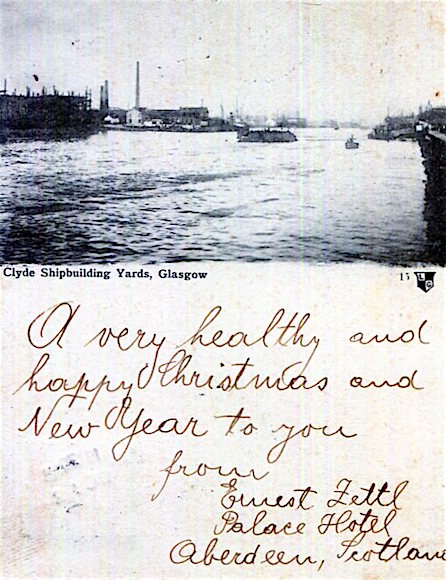 Clyde Shipbuilding Yards, Glasgow
15 LG
A very healthy and
happy Christmas and
New Year to you
from
Ernest Zettl
Palace Hotel
Aberdeen, Scotland